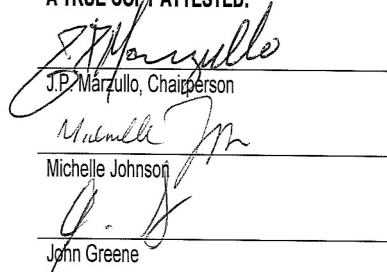 A TRUE COPY ATTESTED:
J.P. Marzullo
J.P. Marzullo, Chairperson
Michelle
Michelle Johnson
John Greene